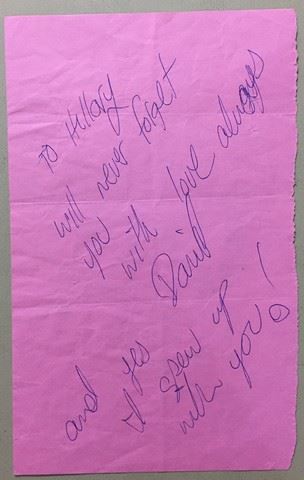 To Hillary
will never forget
you with love always
David
and yes
I grew up
with you!